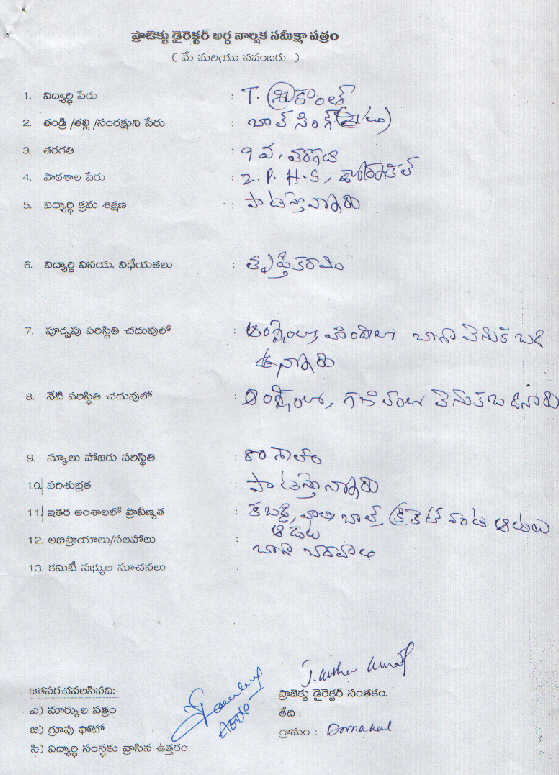 ప్రాజెక్టు డైరెక్టర్ అర్ధ వార్షిక సమీక్షా పత్రం
( మే మరియు నవంబరు )
1. విద్యార్థి పేరు : T. శ్రీకాంత్
2. తండ్రి /తల్లి /సంరక్షుని పేరు : బాల్ సింగ్
3. తరగతి : 9 వ. తరగతి
4. పాఠశాల పేరు : Z. P. H. S,
5. విద్యార్థి క్రమ శిక్షణ : పాటిస్తాన్నాడు
6. విద్యార్థి వినయ, విధేయతలు : తృప్తికరం
7. పూర్వపు పరిస్థితి చదువులో : ఇంగ్లీషు, హిందీలో బాగా వెనుక బడి
ఉన్నాడు
8. నేటి పరిస్థితి చదువులో : ఇంగ్లీషులో, గణితంలో వెనుకబడినాడు
9. స్కూలు హాజరు పరిస్థితి :
10. పరిశుభ్రత : పాటిస్తాన్నాడు
11. ఇతర అంశాలలో ప్రావీణ్యత : కబడ్డీ, వాలీ బాల్, క్రికెట్ వంటి ఆటలు
ఆడటం
12. అభిప్రాయాలు/సలహాలు : బాగా చదవాలి
13. కమిటీ సభ్యుల సూచనలు :
జతపరచవలసినవి:
ఎ) మార్కుల పత్రం
బి) గ్రూపు ఫోటో
సి) విద్యార్థి సంస్థకు వ్రాసిన ఉత్తరం
ప్రాజెక్టు డైరెక్టర్ సంతకం.
తేది
గ్రామం : Dornakal